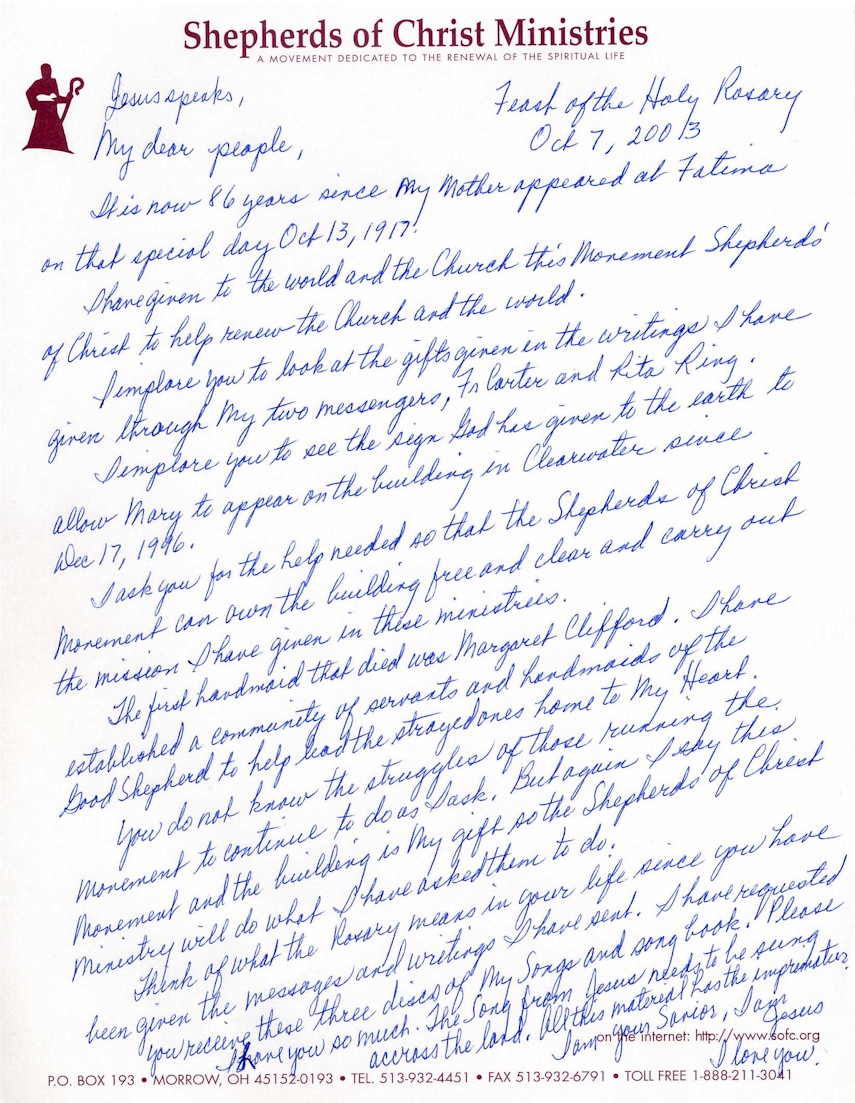 Shepherds of Christ Ministries
A MOVEMENT DEDICATED TO THE RENEWAL OF THE SPIRITUAL LIFE
Jesus speaks,
Feast of the Holy Rosary
Oct 7, 2003
My dear people,
It is now 86 years since My Mother appeared at Fatima
on that special day Oct 13, 1917.
I have given to the world and the Church this Movement Shepherds
of Christ to help renew the Church and the world.
I implore you to look at the gifts given in the writings I have
given through My two messengers, Fr Carter and Rita Ring.
I implore you to see the sign God has given to the earth to
allow Mary to appear on the building in Clearwater since
Dec 17, 1996.
I ask you for the help needed so that the Shepherds of Christ
Movement can own the building free and clear and carry out
the mission I have given in these ministries.
The first handmaid that died was Margaret Clifford. I have
established a community of servants and handmaids of the
Good Shepherd to help lead the strayed ones home to My Heart.
You do not know the struggles of those running the
Movement to continue to do as I ask. But again I say this
Movement and the building is My gift so the Shepherds of Christ
Ministry will do what I have asked them to do.
Think of what the Rosary means in your life since you have
been given the messages and writings I have sent. I have requested
you receive these three discs of My Songs and song book. Please
I love you so much. The Song from Jesus needs to be sung
across the land. All this material has the imprimatur.
I am your Savior, I am
Jesus
on the internet: http://www.sofc.org
I love you.
P.O. BOX 193 • MORROW, OH 45152-0193 • TEL. 513-932-4451 • FAX 513-932-6791 • TOLL FREE 1-888-211-3041